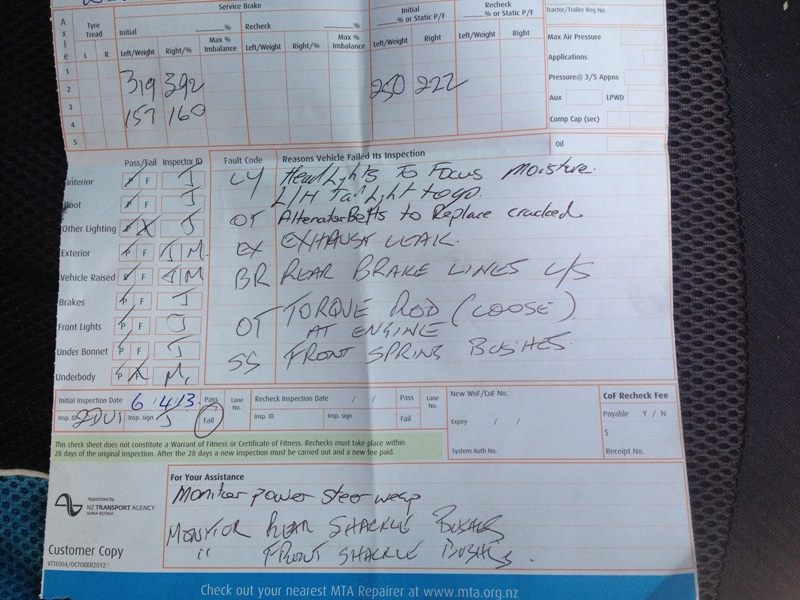 Service Brake
Initial
% or Static P/F
Recheck
% or Static P/F
Tractor/Trailer Reg No.
Axle
Tyre Tread
L R
Initial %
Left/Weight Right/% Max % Imbalance
Recheck %
Left/Weight Right/% Max % Imbalance
Left/Weight Right
Left/Weight Right
Max Air Pressure
Applications
Pressure@ 3/5 Appns
Aux LPWD
Comp Cap (sec)
Oil
1
2 319 392 250 222
3
4 157 160
5
Pass/Fail Inspector ID
Fault Code Reasons Vehicle Failed Its Inspection
Interior P F J
LY HeadLights To Focus Moisture.
Boot P F J
L/H TailLight to go.
Other Lighting P F J
OT Alternator Belts to Replace cracked
Exterior P F J M.
EX EXHAUST LEAK.
Vehicle Raised P F J M
BR REAR BRAKE LINES L/S
Brakes P F J
OT TORQUE ROD (LOOSE)
Front Lights P F J
AT ENGINE
Under Bonnet P F J
SS FRONT SPRING BUSHES
Underbody P F M.
Initial Inspection Date 6/4/13 Pass Lane No.
Recheck Inspection Date / / Pass Lane No.
Insp. ID Insp. sign J Fail
Insp. ID Insp. sign Fail
New WoF/CoF No.
Expiry / /
System Auth No.
CoF Recheck Fee
Payable Y / N
$
Receipt No.
This check sheet does not constitute a Warrant of Fitness or Certificate of Fitness. Rechecks must take place within
28 days of the original inspection. After the 28 days a new inspection must be carried out and a new fee paid.
Appointed by
NZ TRANSPORT AGENCY
WAKA KOTAHI
Customer Copy
VTTE004/OCTOBER2012
For Your Assistance
Monitor power steer weep
MONITOR REAR SHACKLE BUSHES
" FRONT SHACKLE BUSHES.
Check out your nearest MTA Repairer at www.mta.org.nz